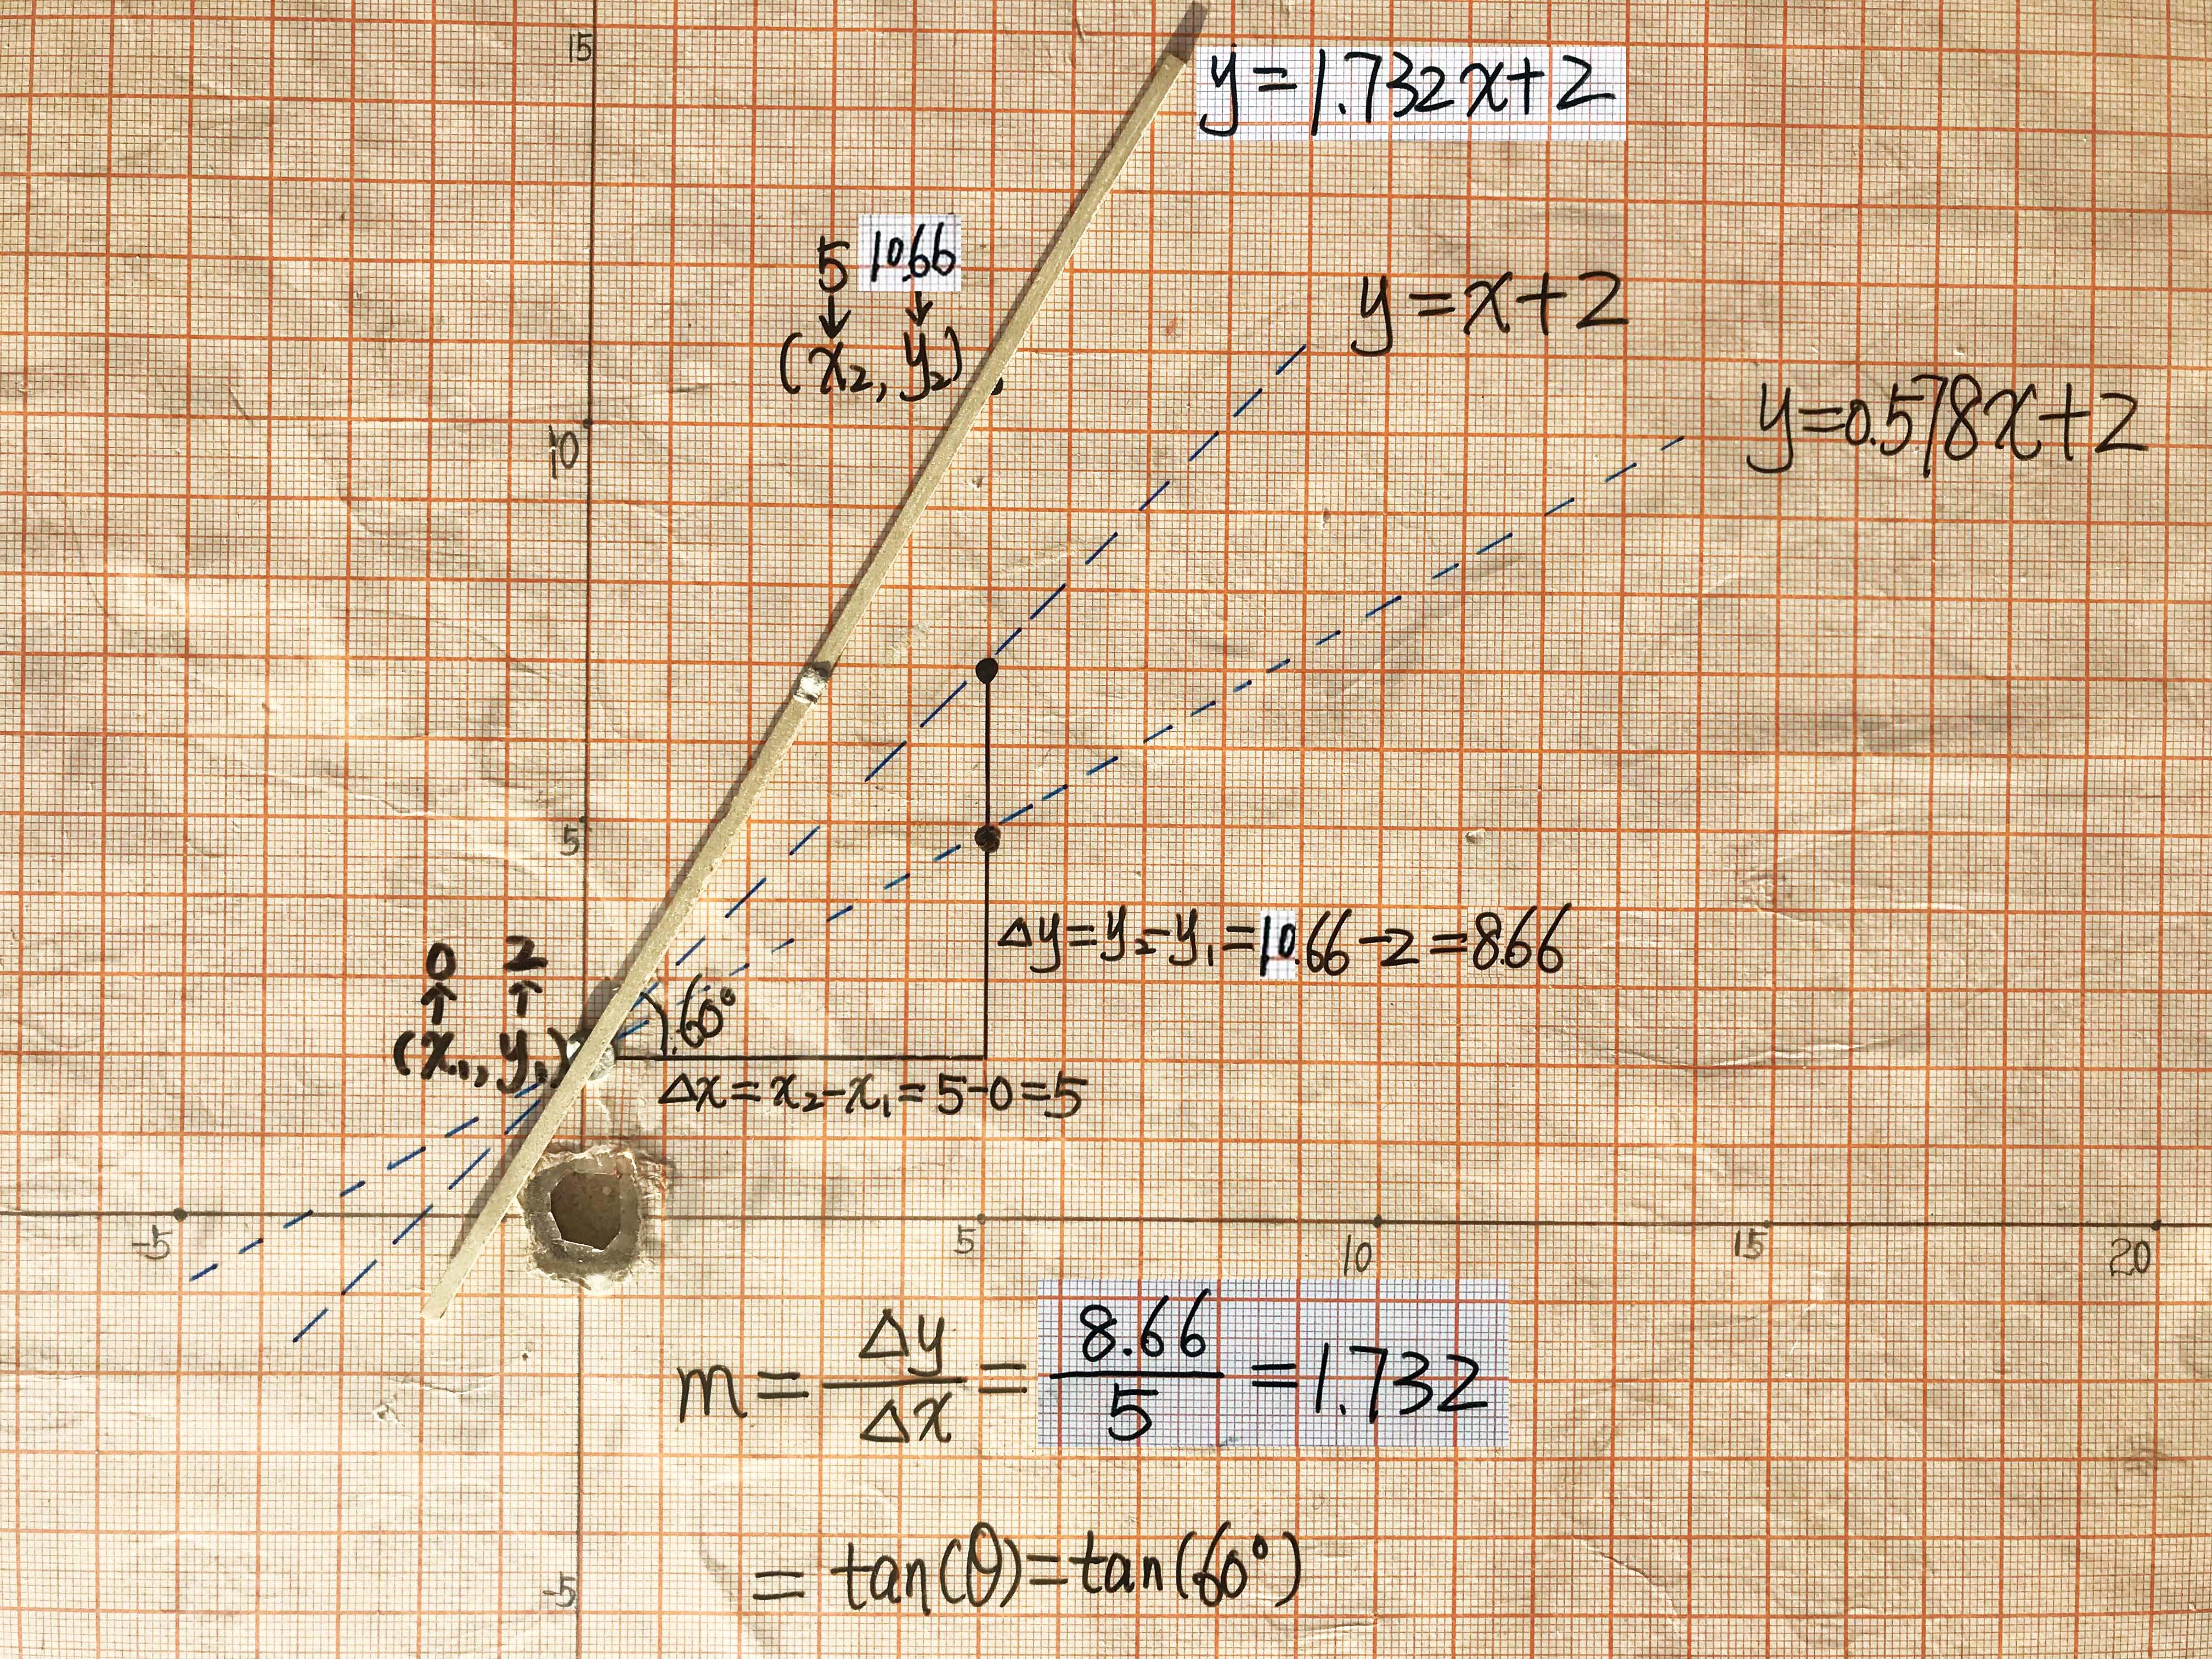 15
y=1.732x+2
5 10.66
(x₂, y₂)
y=x+2
y=0.578x+2
10
5
0 2
(x₁, y₁)
60°
Δy=y₂-y₁=10.66-2=8.66
Δx=x₂-x₁=5-0=5
-5 5 10 15 20
m=Δy/Δx=8.66/5=1.732
=tan(θ)=tan(60°)
-5